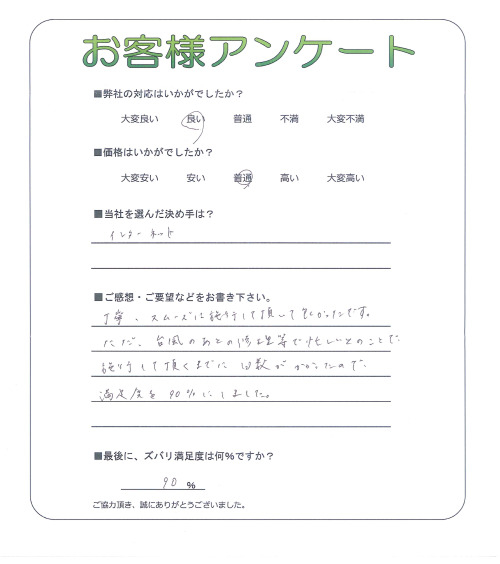 お客様アンケート
■弊社の対応はいかがでしたか？
大変良い 良い 普通 不満 大変不満
■価格はいかがでしたか？
大変安い 安い 普通 高い 大変高い
■当社を選んだ決め手は？
インターネット
■ご感想・ご要望などをお書き下さい。
丁寧、スムーズに施行して頂いて良かったです。
ただ、台風のあとの修理等で忙しいとのことで、
施行して頂くまでに日数がかかったので、
満足度を90%にしました。
■最後に、ズバリ満足度は何％ですか？
90 %
ご協力頂き、誠にありがとうございました。